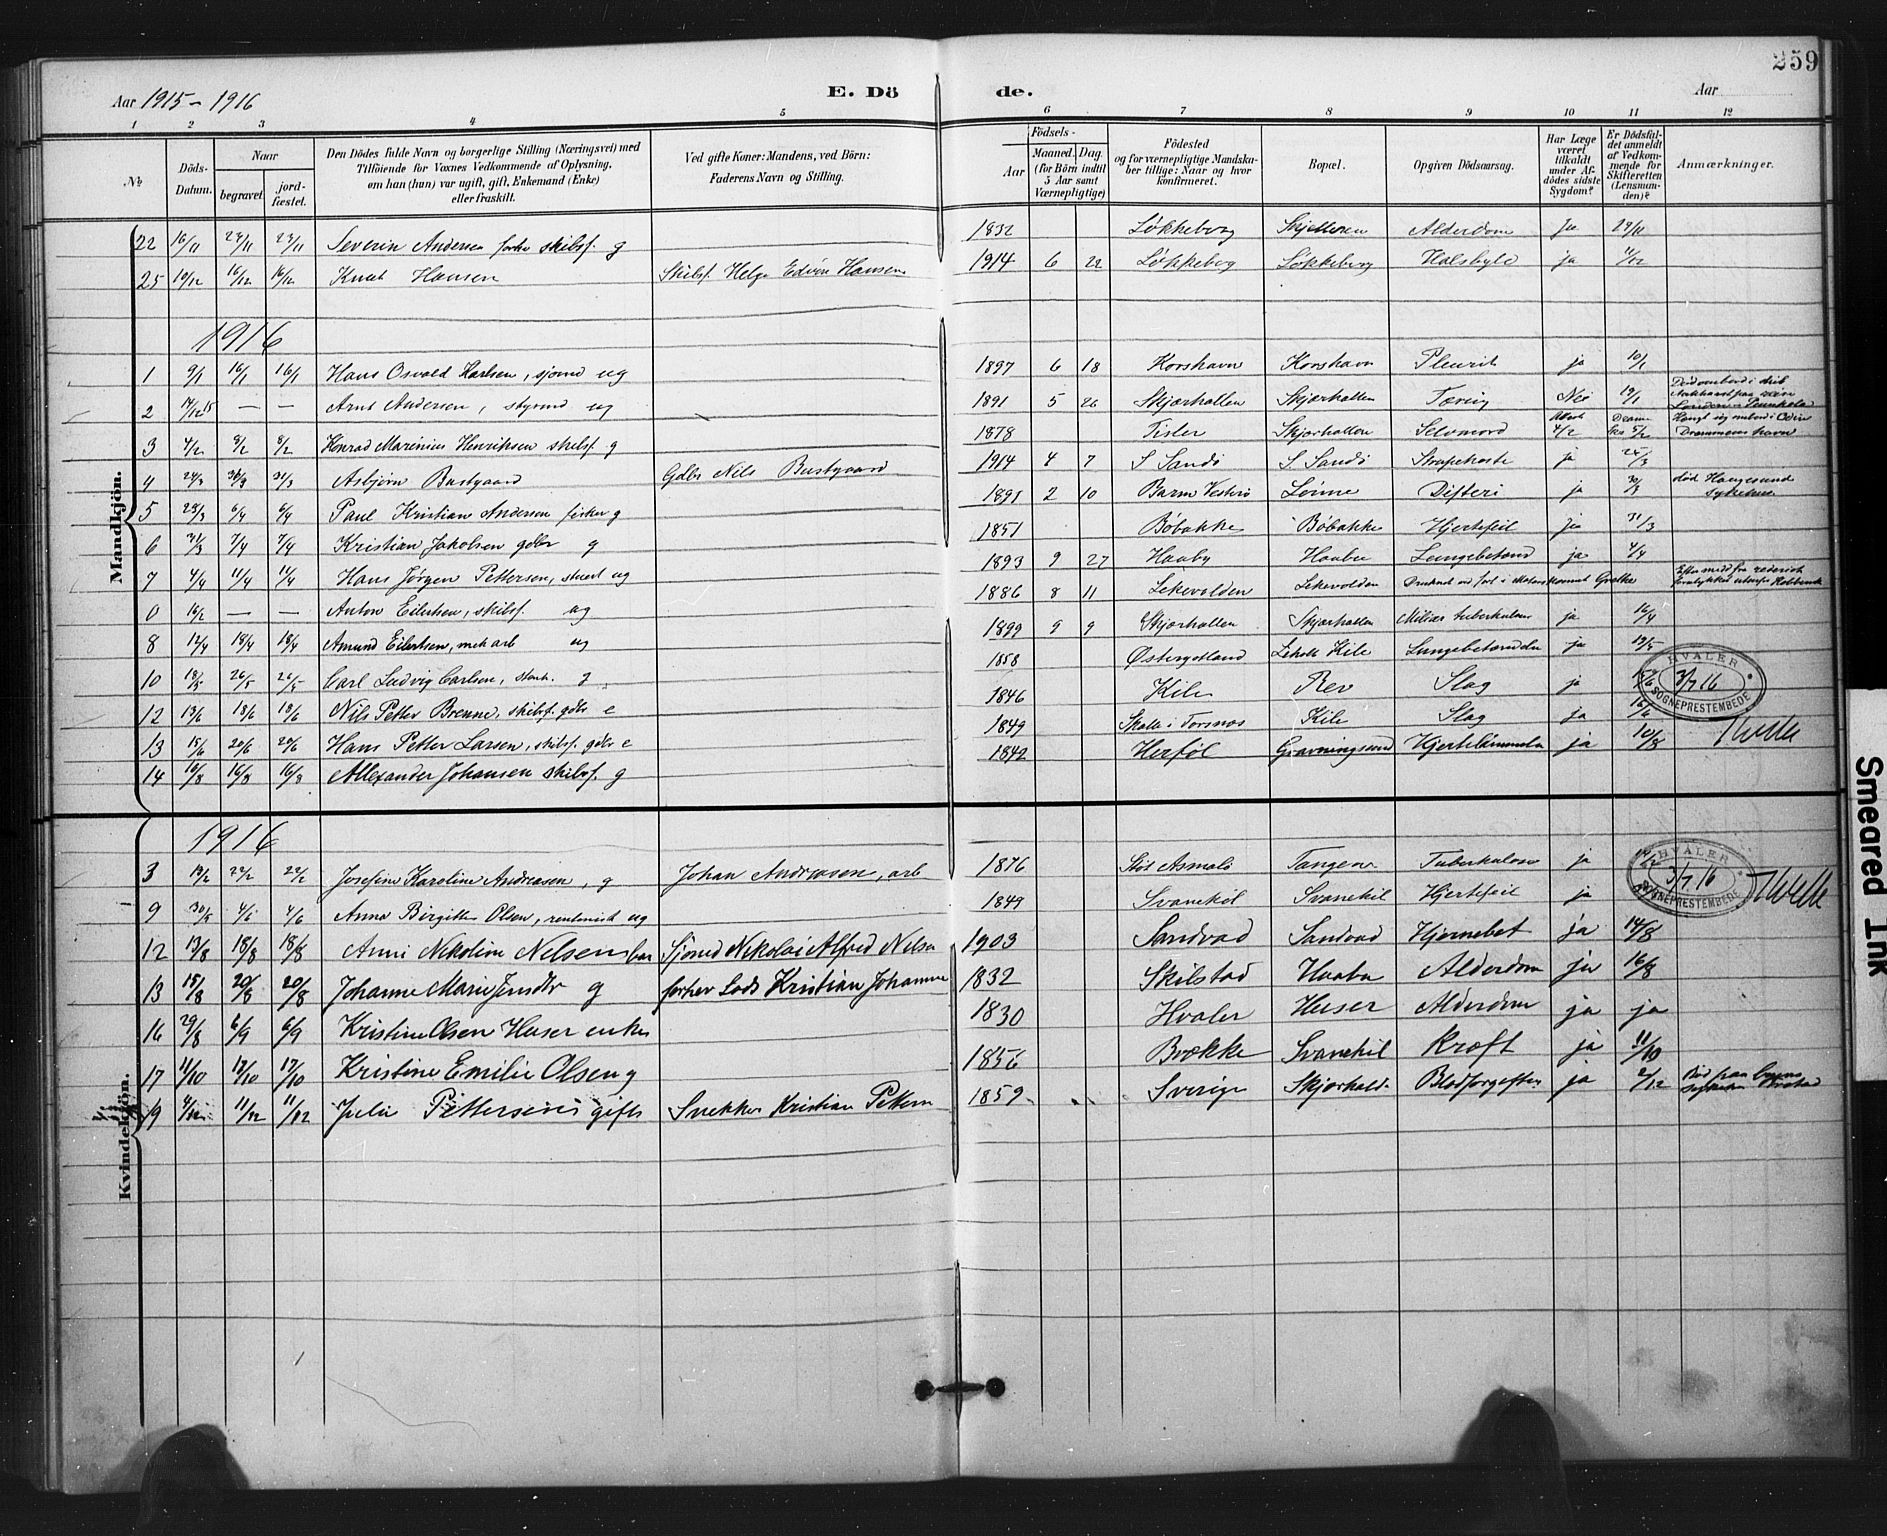 259
Aar 1915-1916 E. Dö de. Aar
1 2 3 4 5 6 7 8 9 10 11 12
No Döds-Datum. Naar begravet jord-fæstet. Den Dödes fulde Navn og borgerlige Stilling (Næringsvei) med Tilföiende for Voxnes Vedkommende af Oplysning, om han (hun) var ugift, gift, Enkemand (Enke) eller fraskilt. Ved gifte Koner: Mandens, ved Börn: Faderens Navn og Stilling. Födsels- Aar Maaned. Dag. (for Börn indtil 5 Aar samt Værnepligtige) Födested og for værnepligtige Mandska-ber tillige: Naar og hvor konfirmeret. Bopæl. Opgiven Dödsaarsag. Har Læge været tilkaldt under Af-dödes sidste Sygdom? Er Dödsfal-det anmeldt af Vedkom-mende for Skifteretten (Lensman-den)? Anmærkninger.
Mandkjön.
22 16/11 Severin Andersen forhv skibsf. g 1832 Løkkeberg Alderdom Ja
25 16/12 16/12 Knut Hansen Skibsf. Helge Edvin Hansen 1914 6 22 Løkkeberg Løkkeberg Halsbyld ja
1916
1 9/1 16/1 16/1 Hans Osvald Karlsen, sjømd ug 1897 6 18 Korshavn Korshavn Pleurit ja 10/1
2 — — Arnt Andersen, styrmd ug 1891 5 26 Skjærhallen Skjærhallen Tæring Nei 19/1
3 4/2 8/2 8/2 Konrad Marenius Henriksen skibsf. g 1878 Tisler Skjærhallen Selvmord 4/2 5/2 Drammens havn
4 24/3 Asbjørn Bustgaard Gdbr Nils Bustgaard 1914 4 7 S Sandö S. Sandö Strupehoste ja
5 6/4 6/4 Paul Kristian Andersen fisker g 1891 2 10 Barm Vesterö Lönne Difteri ja 30/3 död Haugesund Sykehus
6 31/3 7/4 7/4 Kristian Jakobsen gdbr g 1851 Böbakke Böbakke Hjertefeil ja 31/3
7 4/4 11/4 11/4 Hans Jörgen Pettersen, stuert ug 1893 9 27 Haaby Haabu Lungebetænd ja 4/4
0 16/2 — — Anton Eilertsen, skibsf. ug 1886 8 11 Lekevolden Lekevolden
8 12/4 18/4 18/4 Amund Eilertsen, mek arb ug 1899 9 9 Skjærhallen Skjærhallen Miliær tuberkulose ja 16/4
10 18/5 26/5 26/5 Carl Ludvig Carlsen, stenh. g. 1858 Östergotland Kile Lungebetændelse ja 19/5
12 13/6 18/6 18/6 Nils Petter Brenne, skibsf. gdbr e 1846 Kile Rev Slag ja
13 15/6 20/6 20/6 Hans Petter Larsen, skibsf. gdbr e 1849 Skalle i Torsnes Kile Slag ja 16/6
14 10/8 16/8 16/8 Allexander Johansen skibsf. g 1842 Herföl Gravningsund Hjertelammelse ja 10/8
HVALER 3/7 16 SOGNEPRESTEMBEDE
Kvindekjön.
1916
3 22/2 22/2 Josefine Karoline Andreasen, g Johan Andreasen, arb 1876 Asmalö Tangen Tuberkulose ja
9 30/5 4/6 4/6 Anna Birgitte Olsen, rentenist ug 1849 Svanekil Svanekil Hjertefeil ja
HVALER 3/7 16 SOGNEPRESTEMBEDE
12 13/8 18/8 18/8 Anni Nikoline Nelsen bar Sjömd Nikolai Alfred Nelsen 1903 Sandvad Sandvad ja 14/8
13 15/8 20/8 20/8 Johanne Marie Jensdtr g forhev Lods Kristian Johannes 1832 Skilstad Haabu Alderdom ja 16/8
16 29/8 6/9 6/9 Kristine Olsen Huser enke 1830 Hvaler Huser Alderdom ja ja
17 11/10 17/10 17/10 Kristine Emilie Olsen g 1856 Brække Svanekil Kræft ja 11/10
19 11/12 11/12 Julie Pettersen gift Snekker Kristian Pettersen 1859 Sverige Skjærhald. Blodforgiftn ja 2/12
Smeared Ink